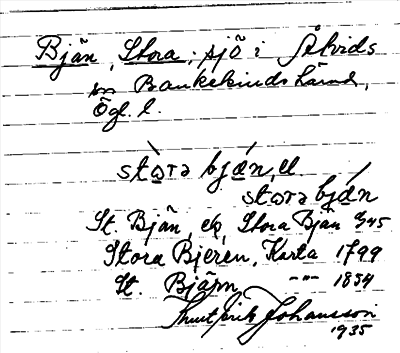 Bjän, Stora, sjö i Åtvids
sn Bankekinds härad,
Ögl. l.
stɷrə bjän, el.
stɷrə bján
St. Bjän, ek, Stora Bjän 345
Stora Bjeren, Karta 1799
St. Bjäṛn, -"- 1854
Knut Erik Johansson
1935